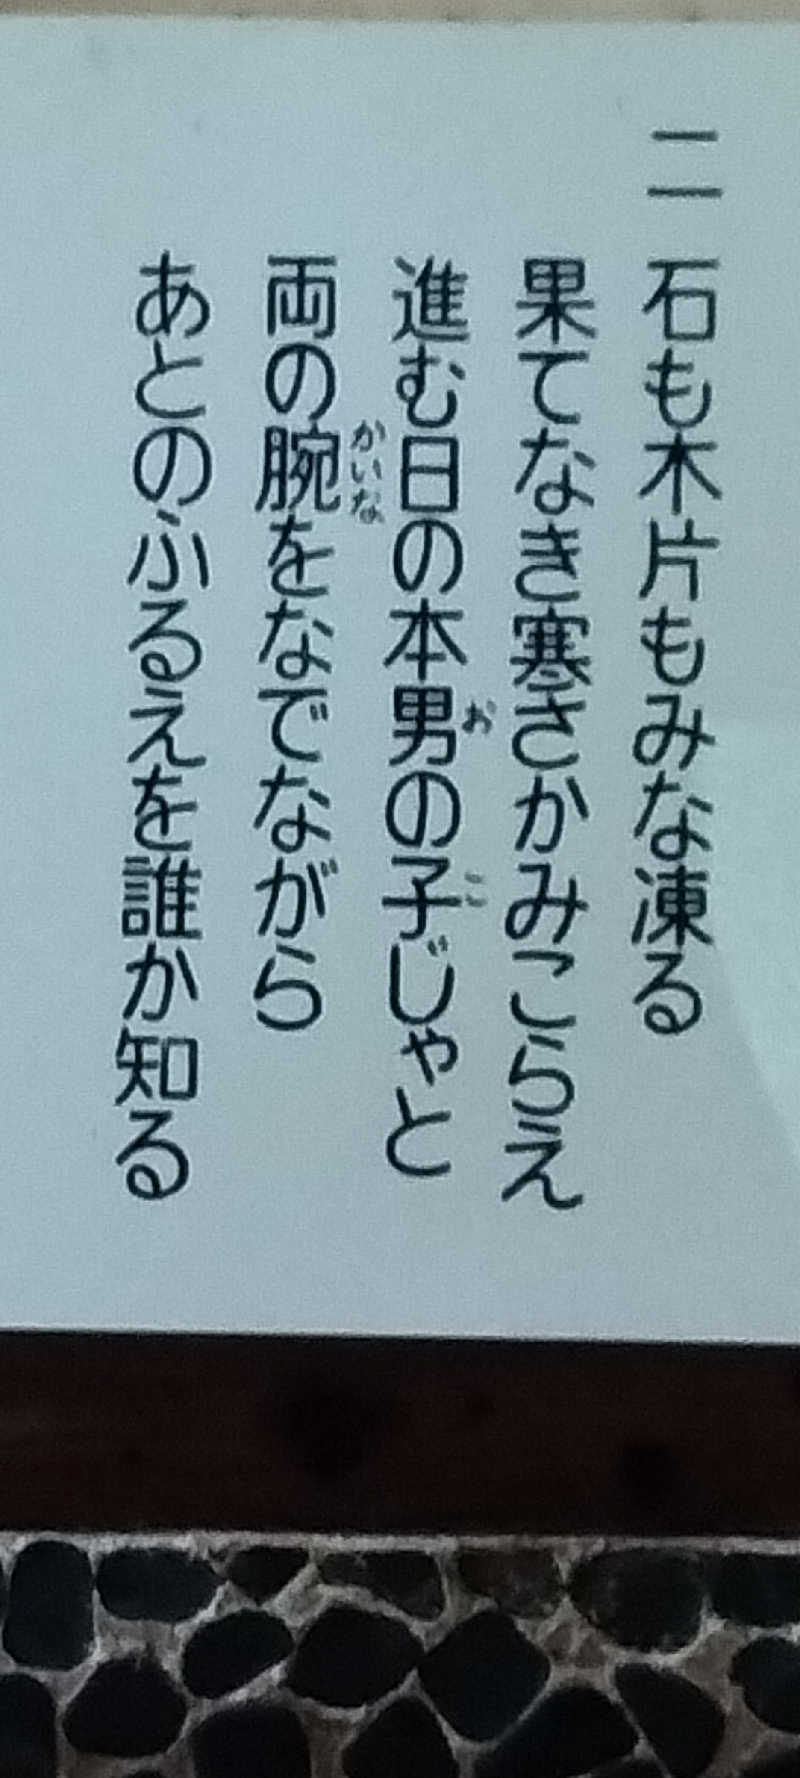 二 石も木片もみな凍る
果てなき寒さかみこらえ
進む日の本男の子じゃと
両の腕をなでながら
あとのふるえを誰か知る